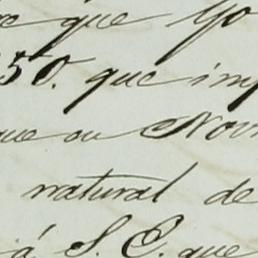 que yo
50. que imp
que ou Nov
natural de
á S. E. que